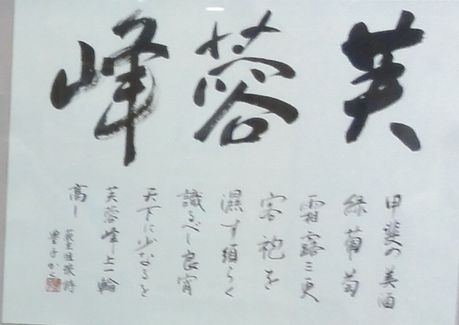 芙蓉峰
甲斐の美酒
緑葡萄
霜露三更
客袍を
濕す須らく
識るべし良宵
天下に少なきを
芙蓉峰上一輪
高し
荻生徂徠詩